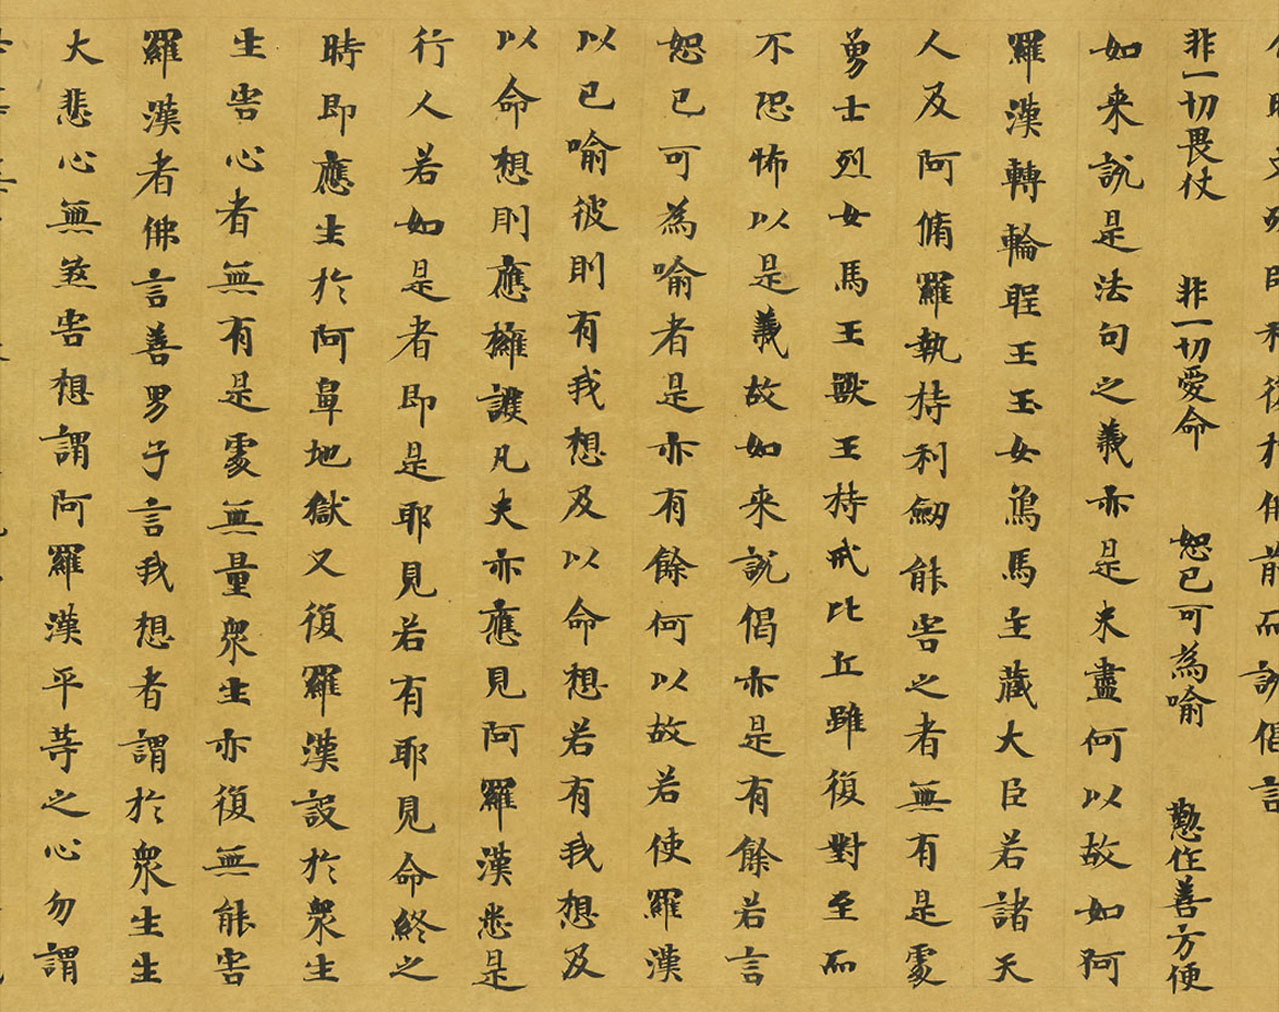 而說偈言
非一切畏杖 非一切愛命 恕己可為喻 懃作善方便
如来說是法句之義亦是未盡何以故如阿
羅漢轉輪聖王玉女象馬主藏大臣若諸天
人及阿脩羅執持利劒能害之者無有是處
勇士烈女馬王獸王持戒比丘雖復對至而
不恐怖以是義故如来說偈亦是有餘若言
恕己可為喻者是亦有餘何以故若使羅漢
以己喻彼則有我想及以命想若有我想及
以命想則應擁護凡夫亦應見阿羅漢悉是
行人若如是者即是耶見若有耶見命終之
時即應生於阿鼻地獄又復羅漢設於衆生
生害心者無有是處無量衆生亦復無能害
羅漢者佛言善男子言我想者謂於衆生生
大悲心無煞害想謂阿羅漢平等之心勿謂